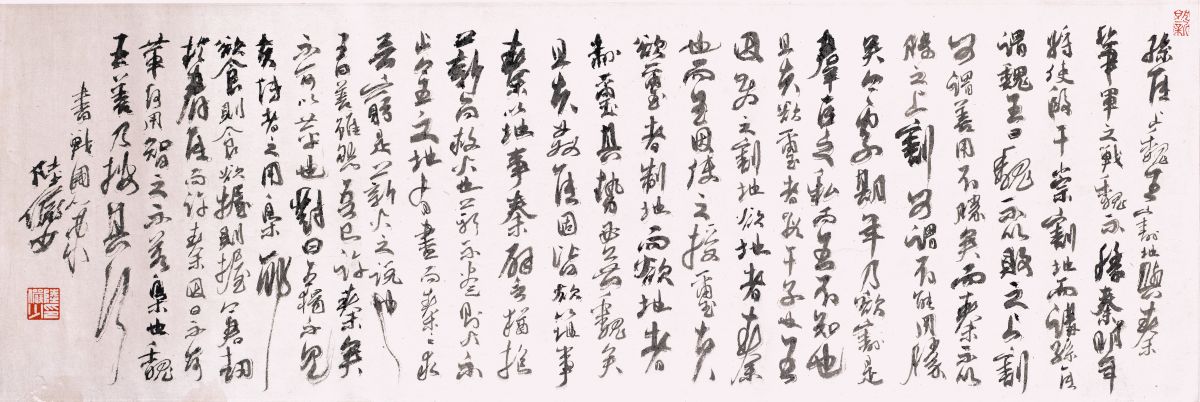 孫臣止魏王割地與秦
華軍之戰魏不勝秦明年
將使段干崇割地而講孫臣
謂魏王曰魏不以敗之上割
可謂善用不勝矣而秦不以
勝之上割可謂不能用勝
矣今處期年乃欲割是
群臣之私而王不知也
且夫欲璽者段干子也王
因使之割地欲地者秦
也而王因使之授璽夫
欲璽者制地而欲地者
制璽其勢必無魏矣
且夫奸臣固皆欲以地事
秦以地事秦辟猶抱
薪而救火也薪不盡則火不
止今王之地有盡而秦之求
無窮是薪火之說也
王曰善雖然吾已許秦矣
不可以革也對曰王獨不見
夫博者之用梟邪
欲食則食欲握則握今君劫
於群臣而許秦因曰不可
革何用智之不若梟也魏
王善乃按其行
書戰國策
陸儼少